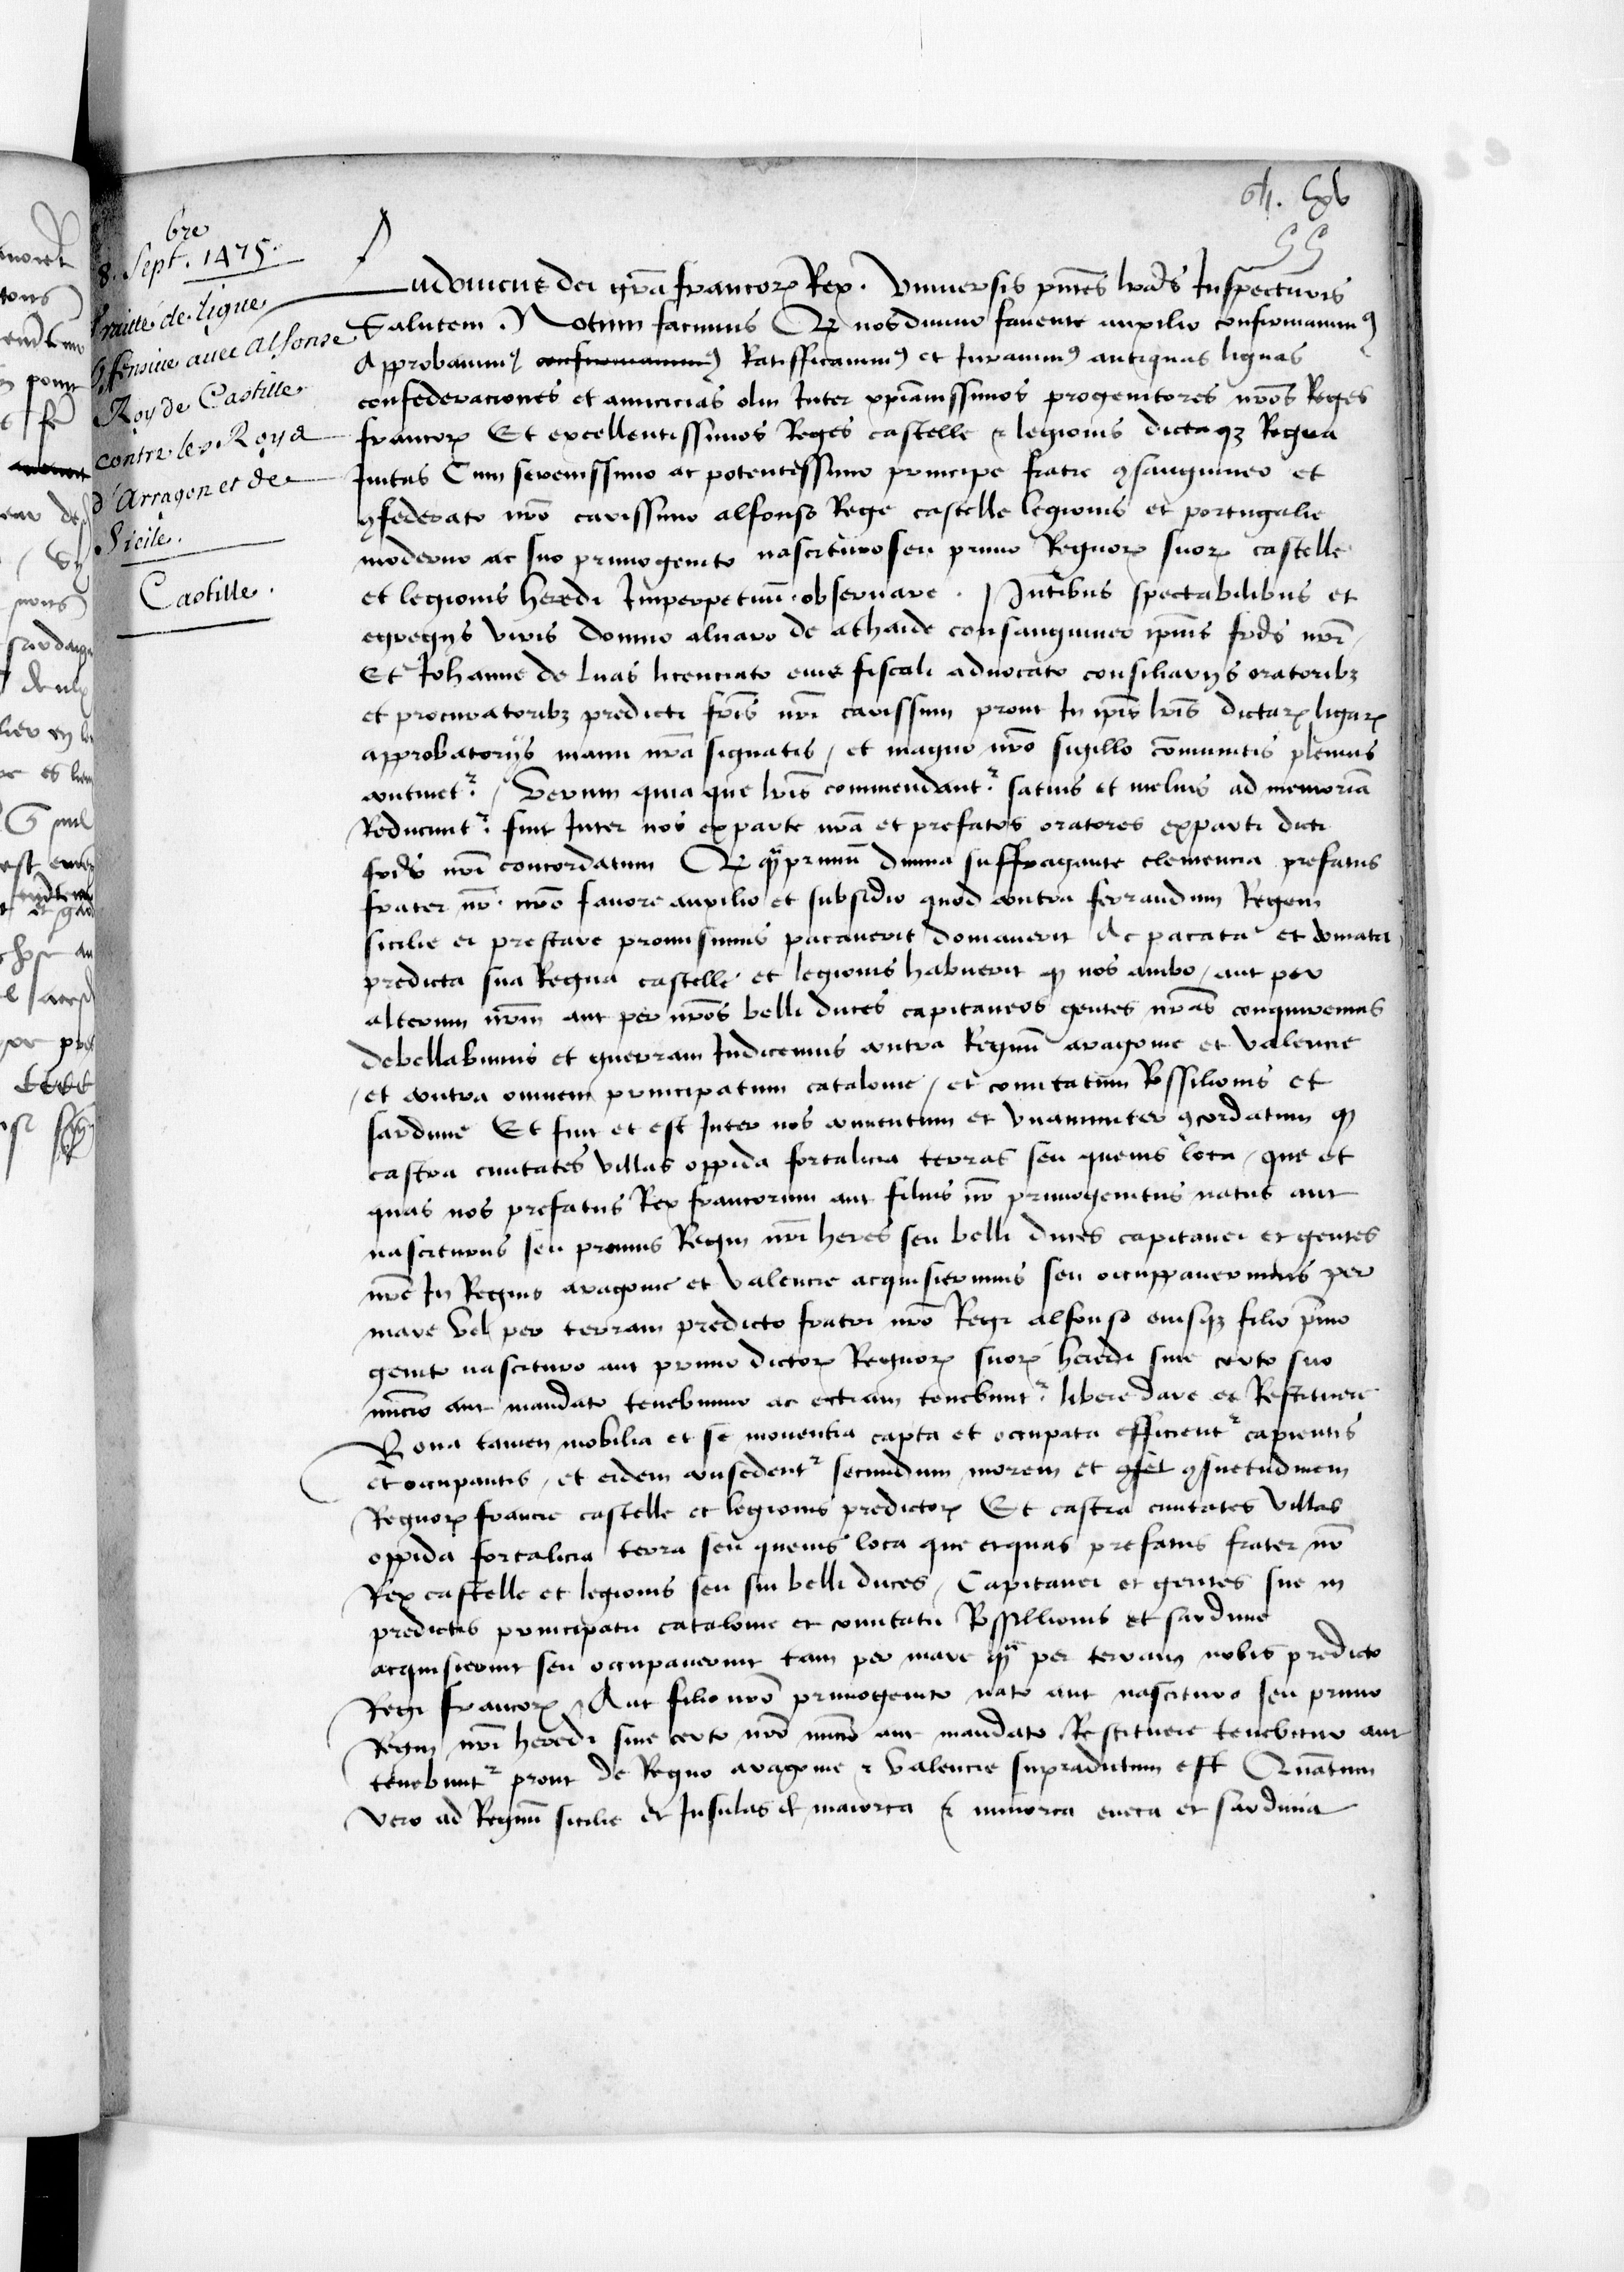 64. lxv
55
8. Sept.bre 1475.
Traitté de Ligue
offensiue auec Alfonse
Roy de Castille
contre les Roys
d'Arragon et de
Sicile.
Castille.
Ludouicus dei grã francorꝝ Rex. Vniuersis pñtes lrãs Inspecturis
Salutem. Notum facimus Qꝫ nos diuino fauente auxilio confirmauimꝰ
Approbauimꝰ confirmauimꝰ Ratifficauimꝰ et Iurauimꝰ antiquas liguas
confederaciones et amicicias olim Inter xp̃ianissimos progenitores nrõs Reges
francorꝝ Et excellentissimos Reges castelle ⁊ legionis dictaqꝫ Regna
Initas Cum serenissimo ac potentissimo principe fratre ꝯsanguineo et
ꝯfederato nrõ carissimo alfonso Rege castelle legionis et portugalie
moderno ac suo primogenito nascituro seu primo Regnorꝝ suorꝝ castelle
et legionis heredi Imperpetuũ obseruare. Pñtibus spectabilibus et
egregijs viris domino aluaro de athaide consanguineo ip̃ius frĩs nrĩ
Et Johanne de luas licenciato eius fiscali aduocato consiliarijs oratoribꝫ
et procuratoribꝫ predicti frĩs nrĩ carissimi prout In ip̃is lrĩs dictarꝝ ligarꝝ
approbatorijs manu nrã signatis, et magno nrõ sigillo cõmunitis plenius
continet᷑. Verum quia que lrĩs commendant᷑ satius et melius ad memoriã
Reducunt᷑ fuit Inter nos ex parte nrã et prefatos oratores ex parti dicti
frĩs nrĩ concordatum Qꝫ qꝫprimũ diuina suffragante clemencia prefatus
frater nr̃ nrõ fauore auxilio et subsidio quod contra ferrandum Regem
sicilie ei prestare promisimus pacauerit domauerit Ac pacata et domata
predicta sua Regna castelle et legionis habuerit ꝙ nos ambo, aut per
alterum nrũm aut per nrõs belli duces capitaneos gentes nrãs conquiremus
debellabimus et guerram Indicemus contra Regnũ aragonie et valencie
, et contra omnem principatum catalonie, et comitatum Rossilionis et
sardinie Et fuit et est Inter nos conuentum et vnanimiter ꝯcordatum ꝙ
castra ciuitates villas oppida fortalicia terras seu queuis loca, que et
quas nos prefatus Rex francorum aut filius nr̃ primogenitus natus aut
nasciturus seu primus Regni nrĩ heres seu belli duces capitanei et gentes
nrẽ In Regnis aragonie et valencie acquisierimus seu occuppauerimus per
mare vel per terram predicto fratri nrõ Regi alfonso eiusqꝫ filio p̃mo
genito nascituro aut primo dictorꝝ Regnorꝝ suorꝝ heredi siue certo suo
nũcio aut mandato tenebimur ac ectiam tenebunt᷑ libere dare et Restituere
Bona tamen mobilia et se mouentia capta et occupata efficient᷑ capientis
et occupantis, et eidem consedent᷑ secundum morem et ꝯsuetudinem
Regnorꝝ francie castelle et legionis predictorꝝ Et castra ciuitates villas
oppida fortalicia terra seu queuis loca que et quas prefatus frater nr̃
Rex castelle et legionis seu sui belli duces, Capitanei et gentes sue in
predictis principatu catalonie et comitatu Rossillionis et sardinie
acquisierint seu occupauerint tam per mare qꝫ per terram nobis predicto
Regi francorꝝ, Aut filio nrõ primogenito nato aut nascituro seu primo
Regni nrĩ heredi siue certo nrõ nũcio aut mandato Restituere tenebitur aut
tenebunt᷑ prout de Regno aragonie ⁊ valencie supradictum est Quãtum
vero ad Regnũ sicilie et Insulas et maiorca ⁊ minorca eueca et sardinia